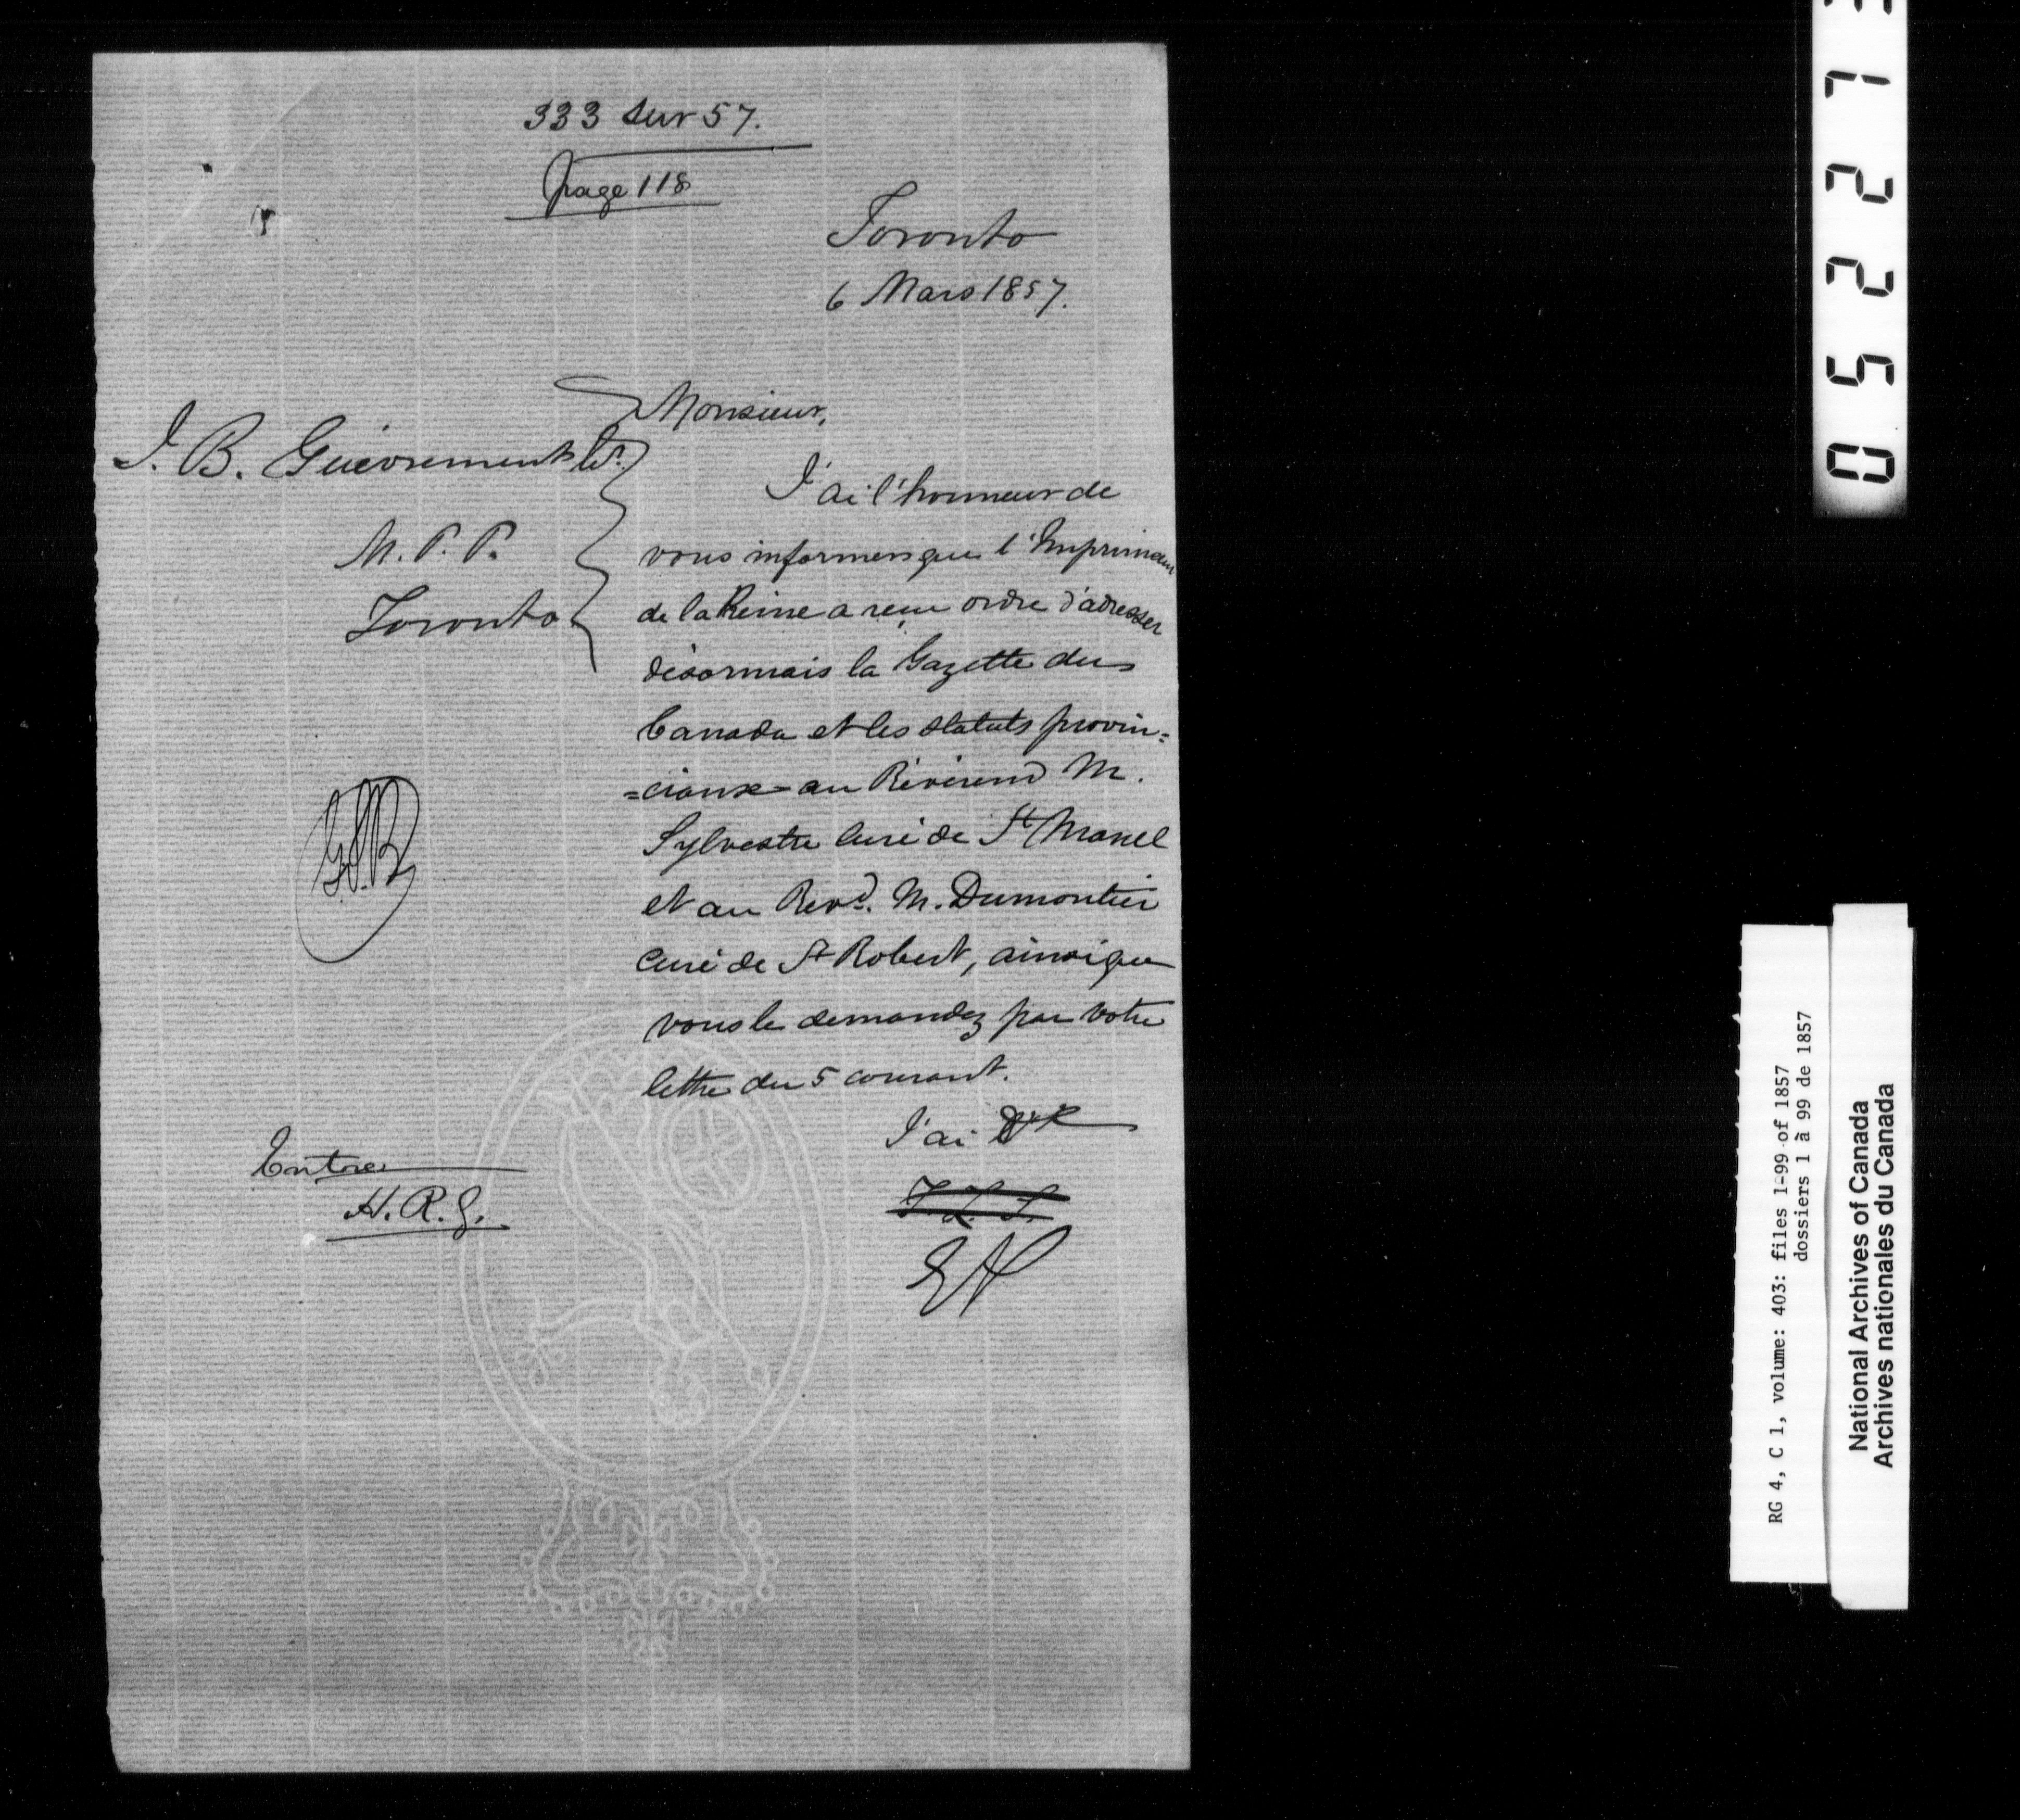 333 sur 57.
page 118
Toronto
6 Mars 1857.
Monsieur,
J. B. Guévremont
M. P. P.
Toronto
J'ai l'honneur de
vous informer que l'Imprimeur
de la Reine a reçu ordre d'adresser
désormais la Gazette du
Canada et les statuts provin=
=ciaux au Révérend M.
Sylvestre Curé de St Marcel
et au Revd. M. Dumontier
curé de St Robert, ainsi que
vous le demandez par votre
lettre du 5 courant.
J'ai
Entré
H.R.G.
0 5 2 2 7
RG 4, C 1, volume: 403: files 1-99 of 1857
dossiers 1 à 99 de 1857
National Archives of Canada
Archives nationales du Canada